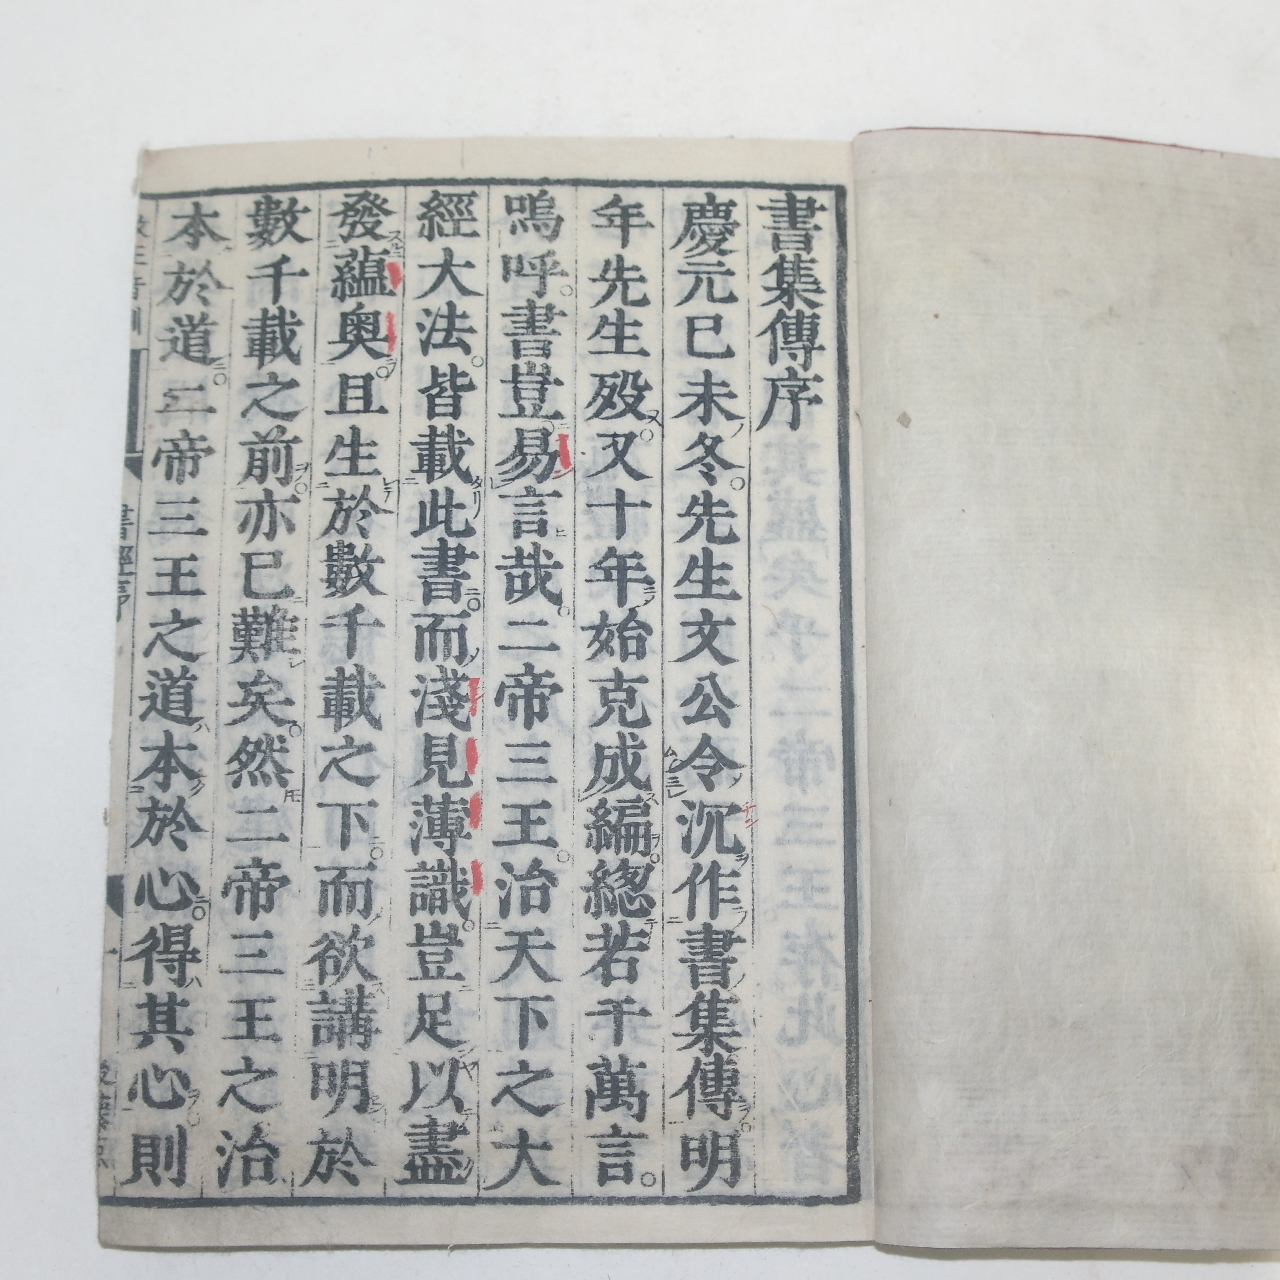 書集傳序
慶元已未冬先生文公令沉作書集傳明
年先生歿又十年始克成編緫若干萬言
嗚呼書豈易言哉二帝三王治天下之大
經大法皆載此書而淺見薄識豈足以盡
發蘊奧且生於數千載之下而欲講明於
數千載之前亦已難矣然二帝三王之治
本於道二帝三王之道本於心得其心則
書經序
一